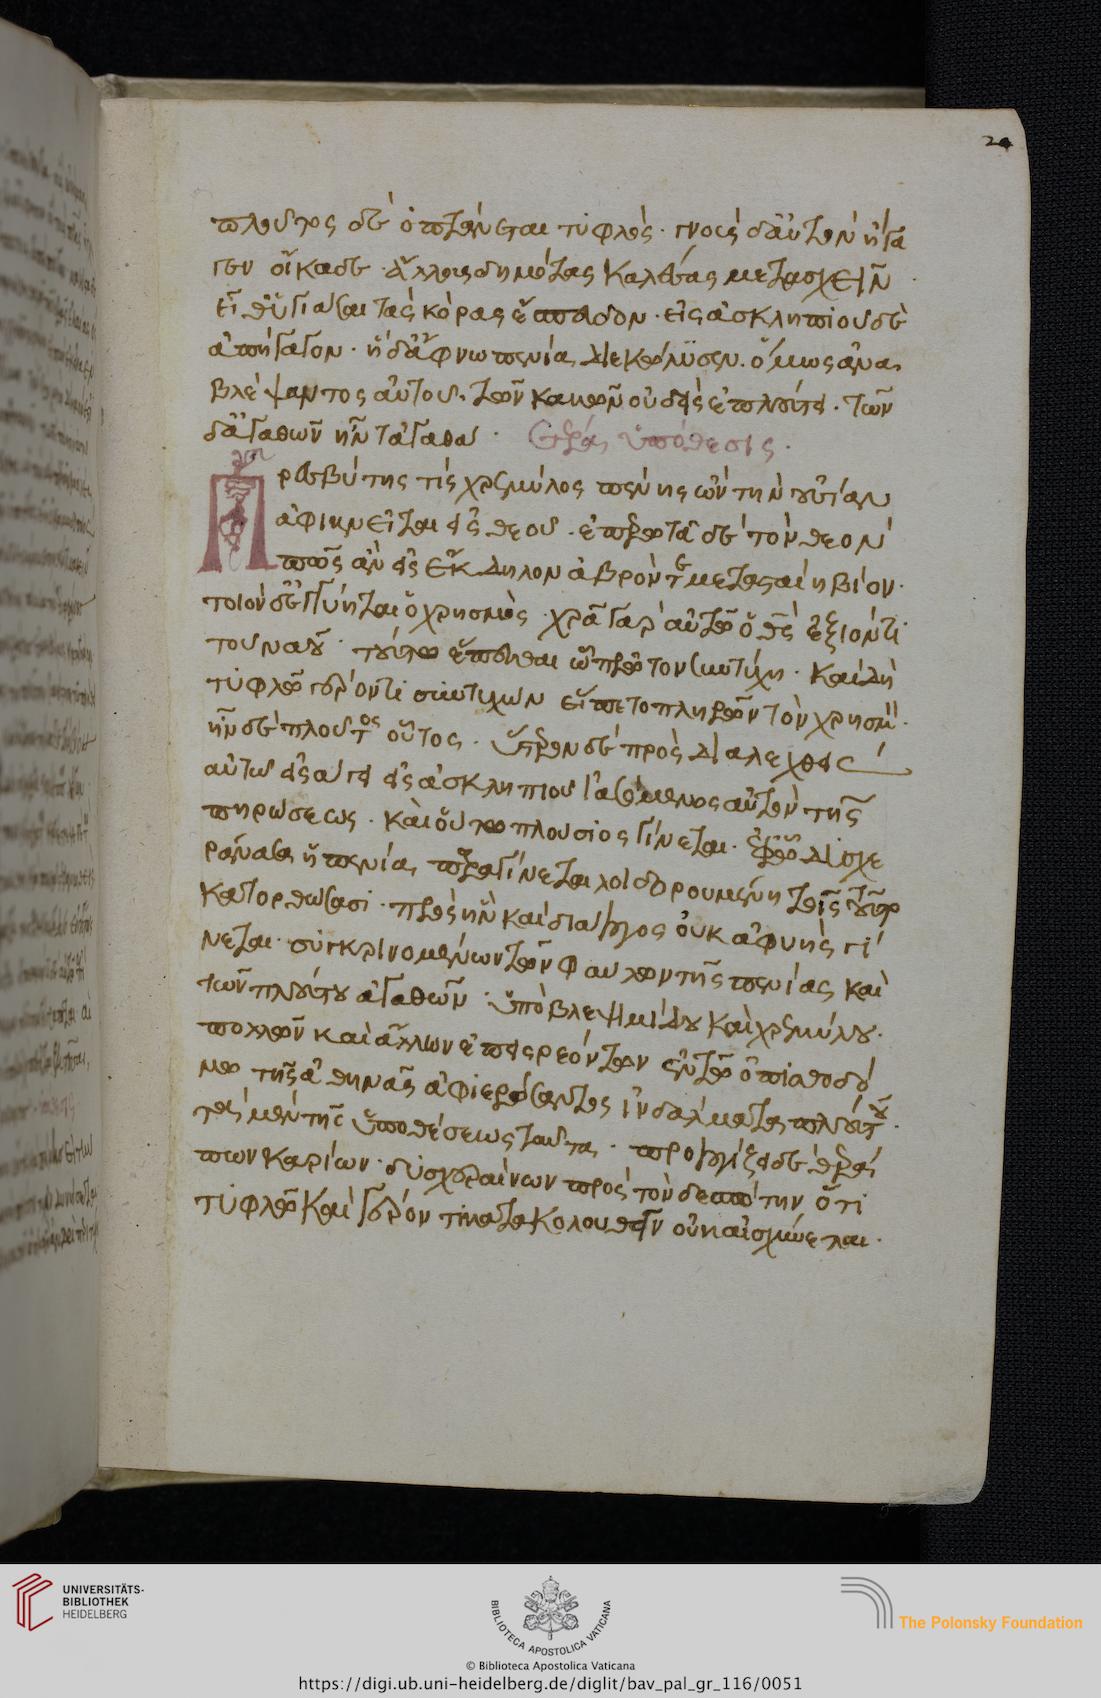 24
πλοῦτος δὲ ὁπτάνεται τυφλός. γνοὺς δ' αὐτὸν ἤγα
γεν οἴκαδε. ἄλλους δημότας καλέσας μετασχεῖν.
εἶθ' ὑγιάσαι τὰς κόρας ἔσπευδον. εἰς ἀσκληπιοῦ δὲ
ἀπήγαγον. ἡ δ' ἄφνω πενία διεκώλυσεν. ὅμως ἀνα
βλέψαντος αὐτοῦ. τῶν κακῶν οὐδεὶς ἐπλούτει. τῶν
δ' ἀγαθῶν ἦν τἀγαθά. ἑτέρα ὑπόθεσις.
Πρεσβύτης τίς χρεμύλος πένης ὢν τὴν οὐσίαν
ἀφικνεῖται εἰς θεοῦ. ἐπερωτᾶ δὲ τὸν θεὸν
πῶς ἂν εἰς ἔκδηλον ἁβρόν τε μετασταίη βίον.
τοιόνδ' ἐγγυήται ὁ χρησμός. χρᾶ γὰρ αὐτῶ ὁ θεὸς ἐξιόντι
τοῦ ναοῦ. τούτω ἕπεσθαι ὧ πρῶτον συντύχη. καὶ δὴ
τυφλῶ γέροντι συντυχὼν εἵπετο πληρῶν τὸν χρησμόν.
ἦν δὲ πλοῦτος οὗτος. ὕστερον δὲ προσδιαλεχθεὶς
αὐτῶ εἰσάγει εἰς ἀσκληπιοῦ ἰασόμενος αὐτὸν τῆς
πηρώσεως. καὶ οὕτω πλούσιος γίνεται. ἐφ' ὧ δυσχε
ράνασα ἡ πενία παραγίνεται λοιδορουμένη τοῖς τοῦτο
κατορθώσασι. πρὸς ἣν καὶ διάλογος οὐκ ἀφυὴς γί
νεται. συγκρινομένων τῶν φαύλων τῆς πενίας καὶ
τῶν πλούτου ἀγαθῶν. ὑπὸ βλεψιδήμου καὶ χρεμύλου.
πολλῶν καὶ ἄλλων ἐπεισρεόντων ἐν τῶ ὀπισθοδό
μω τῆς ἀθηνᾶς ἀφιερώσαντες ἰνδάλματα πλούτου.
τὰ μὲν τῆς ὑποθέσεως ταῦτα. προλογίζει δὲ θερά
πων καρίων. δυσχεραίνων πρὸς τὸν δεσπότην ὅτι
τυφλῶ καὶ γέροντί κατακολουθεῖν οὐκ αἰσχύνεται.
UNIVERSITÄTS-
BIBLIOTHEK
HEIDELBERG
BIBLIOTECA APOSTOLICA VATICANA
The Polonsky Foundation
© Biblioteca Apostolica Vaticana
https://digi.ub.uni-heidelberg.de/diglit/bav_pal_gr_116/0051